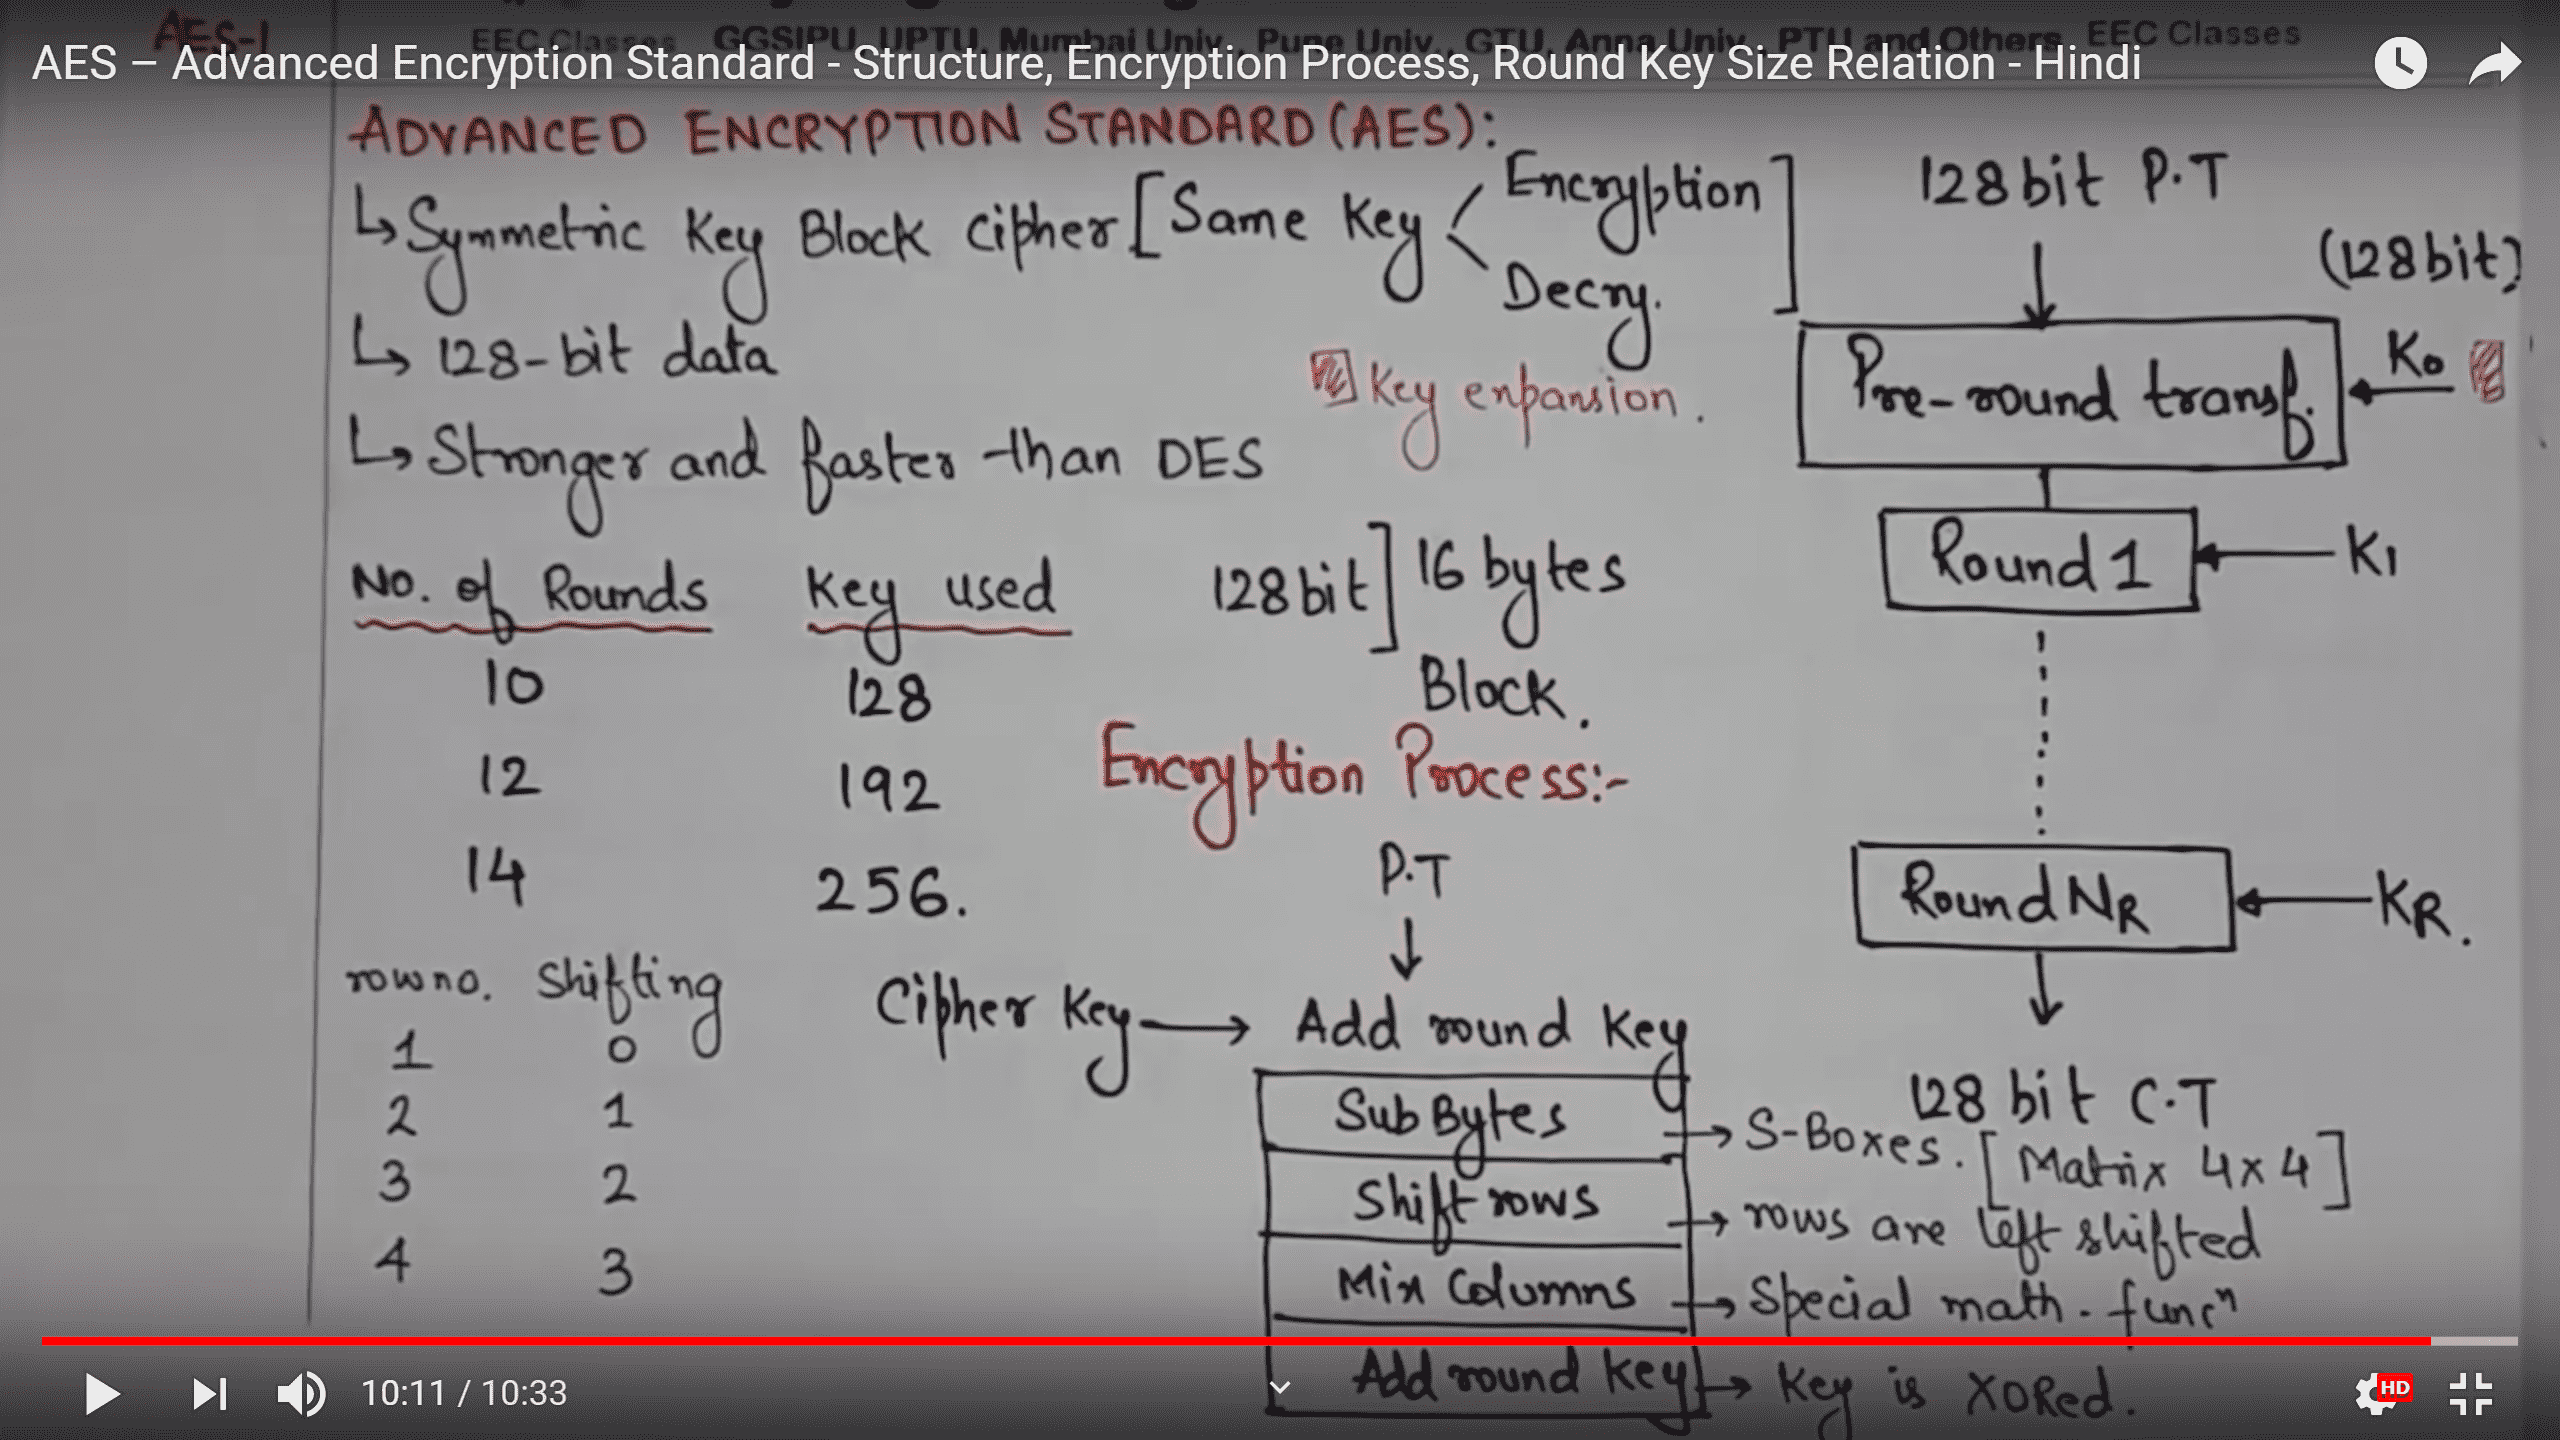 AES-1
EEC Classes GGSIPU, UPTU, Mumbai Univ., Pune Univ., GTU, Anna Univ., PTU and Others EEC Classes
AES – Advanced Encryption Standard - Structure, Encryption Process, Round Key Size Relation - Hindi
ADVANCED ENCRYPTION STANDARD (AES):
↳ Symmetric Key Block Cipher [Same Key < Encryption
Decry. ]
↳ 128-bit data
Key expansion.
↳ Stronger and faster than DES
No. of Rounds Key used
10 128
12 192
14 256.
128 bit] 16 bytes
Block.
row no. Shifting
1 0
2 1
3 2
4 3
Encryption Process:-
P.T
↓
Cipher Key → Add round key
Sub Bytes → S-Boxes. [Matrix 4x4]
Shift rows → rows are left shifted
Mix Columns → Special math. funcⁿ
Add round key → Key is XORed.
128 bit P.T
(128 bit)
Pre-round transf. ← K0
Round 1 ← K1
Round NR ← KR.
128 bit C.T
10:11 / 10:33
HD